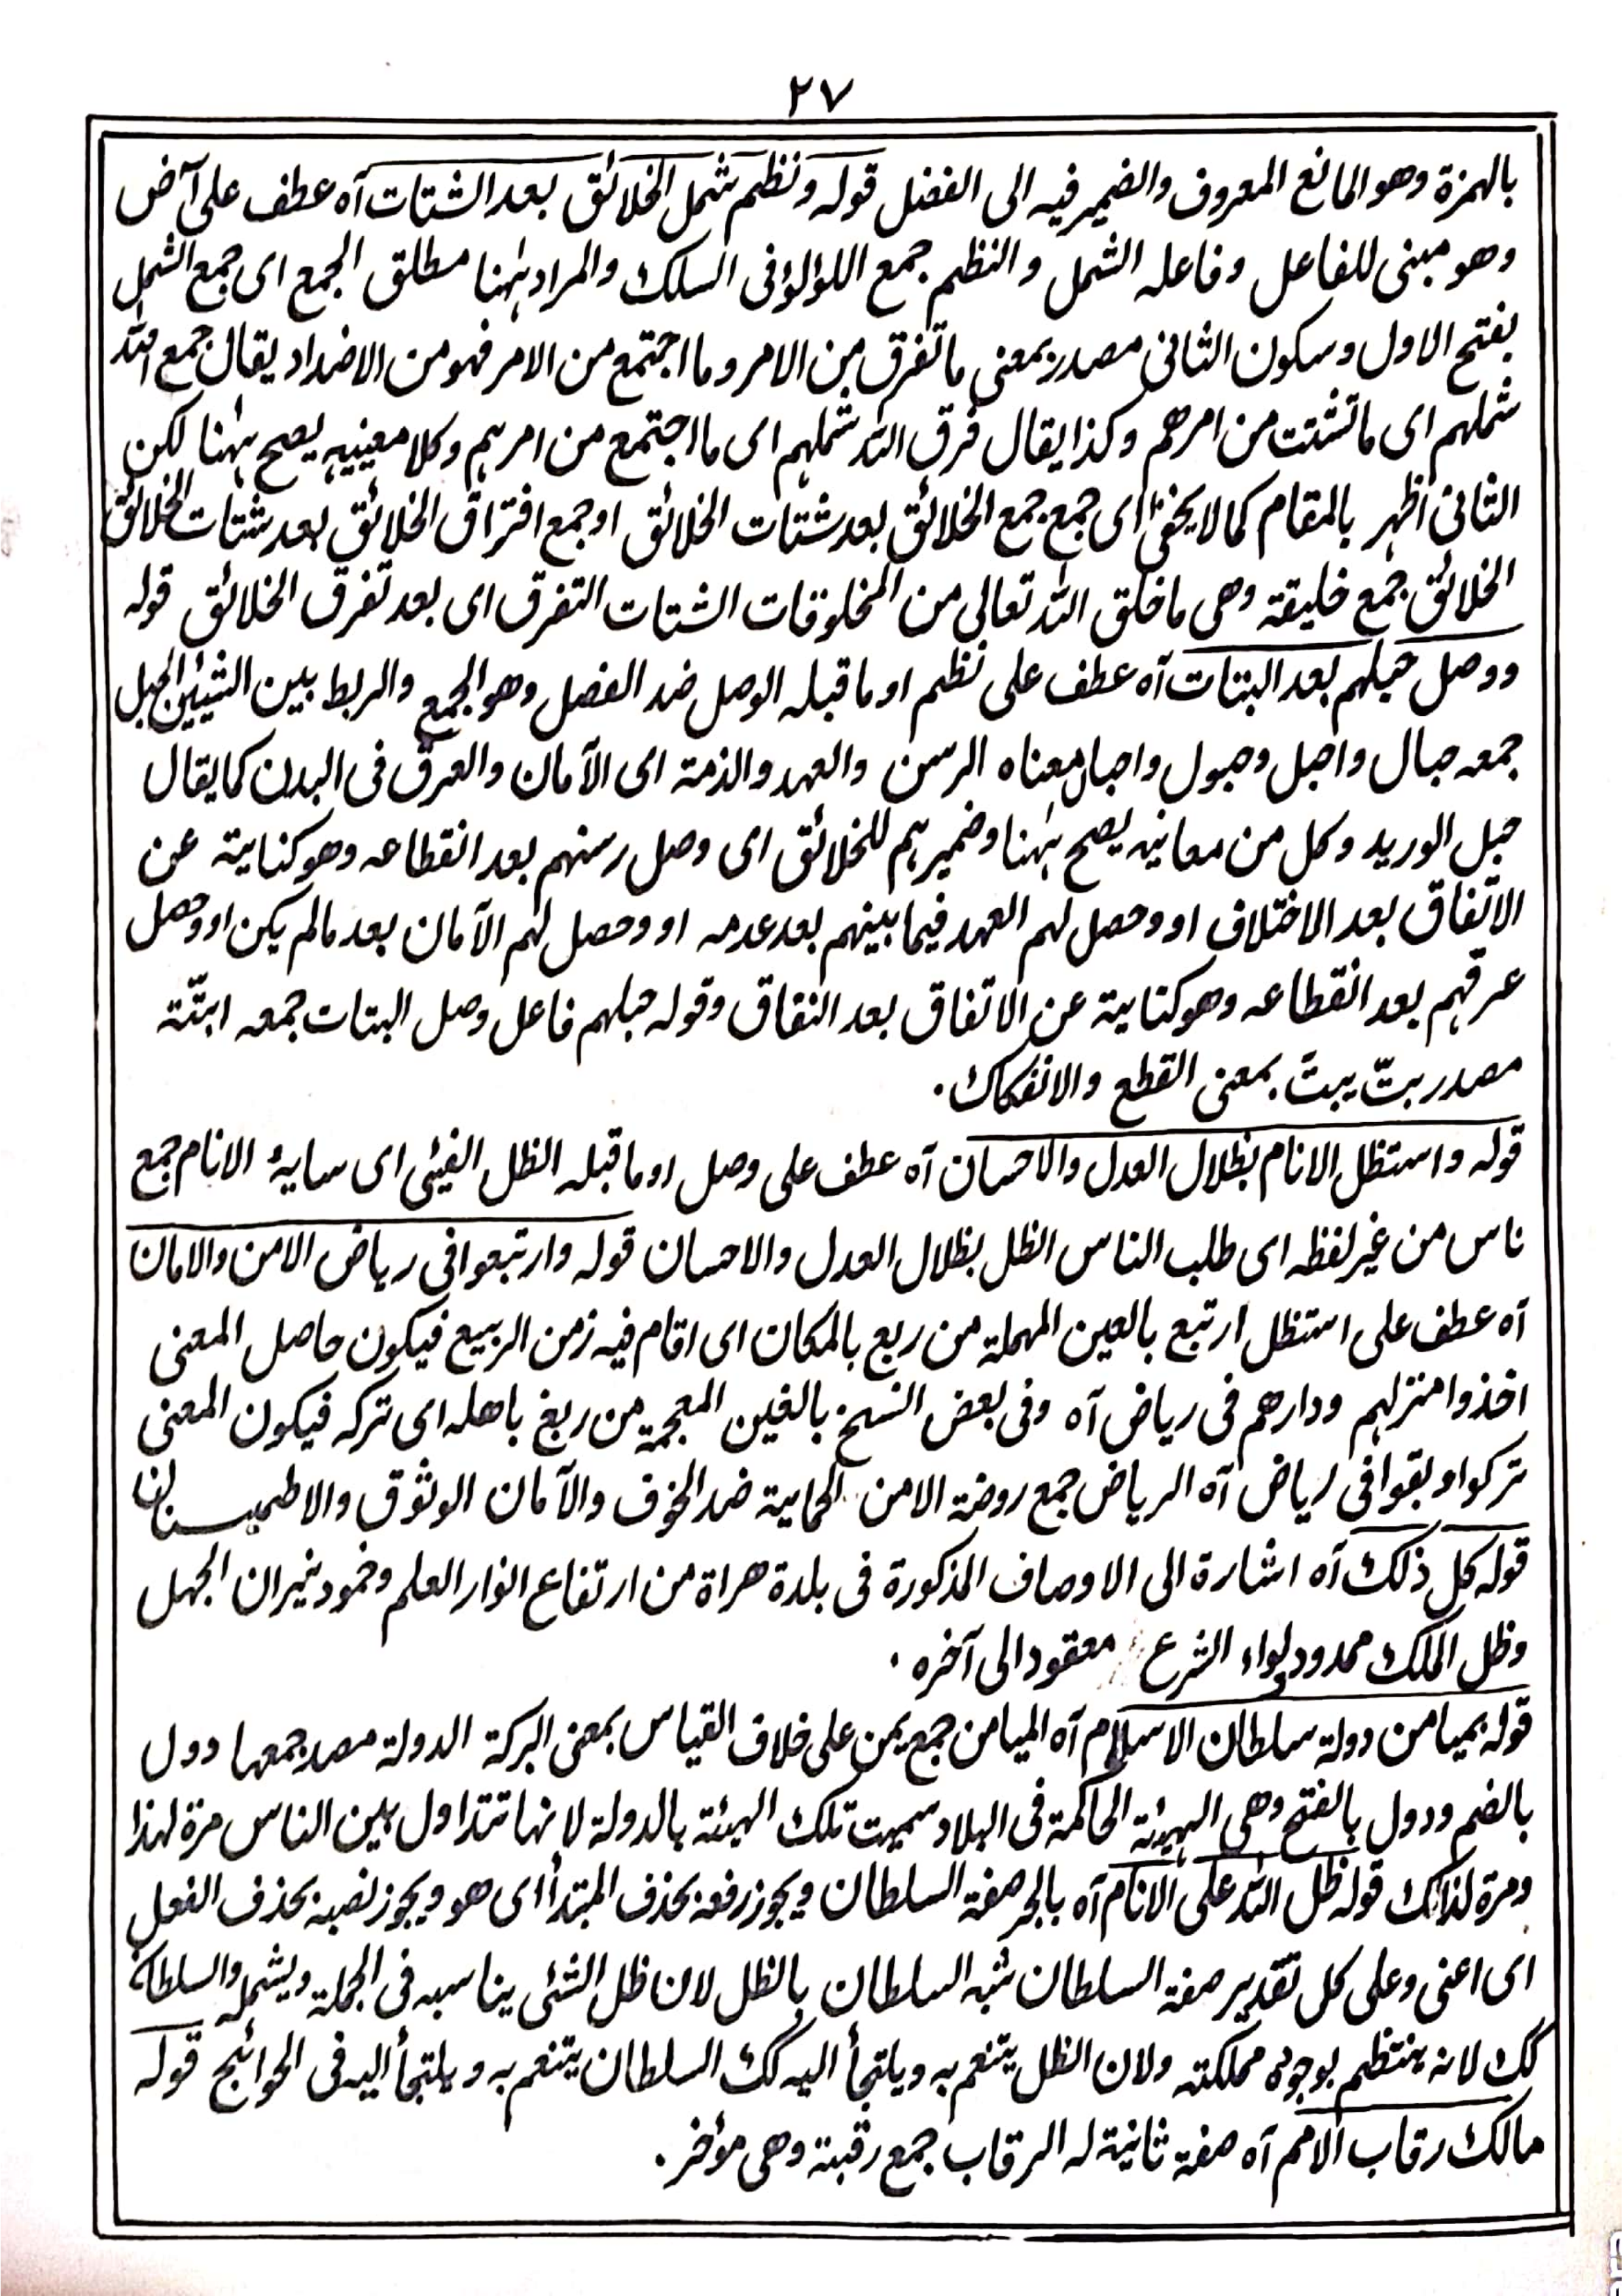 ٢٧
بالهمزة وهو المائع المعروف والضمير فيه الى الفضل قوله ونظم شمل الخلائق بعد الشتات آه عطف على آض
وهو مبنى للفاعل وفاعله الشمل والنظم جمع اللؤلؤ فى السلك والمراد ههنا مطلق الجمع اى جمع الشمل
بفتح الاول وسكون الثانى مصدر بمعنى ما تفرق من الامر وما اجتمع من الامر فهو من الاضداد يقال جمع الله
شملهم اى ما تشتت من امرهم وكذا يقال فرق الله شملهم اى ما اجتمع من امرهم وكلا معنييه يصح ههنا لكن
الثانى اظهر بالمقام كما لا يخفى اى جمع جمع الخلائق بعد شتات الخلائق او جمع افتراق الخلائق بعد شتات الخلائق
الخلائق جمع خليقة وهى ما خلق الله تعالى من المخلوقات الشتات التفرق اى بعد تفرق الخلائق قوله
ووصل حبلهم بعد البتات آه عطف على نظم او ما قبله الوصل ضد الفصل وهو الجمع والربط بين الشيئين الحبل
جمعه حبال واحبل وحبول واحبال معناه الرسن والعهد والذمة اى الآمان والعرق فى البدن كما يقال
حبل الوريد وكل من معانيه يصح ههنا وضمير هم للخلائق اى وصل رسنهم بعد انقطاعه وهو كناية عن
الاتفاق بعد الاختلاف او وحصل لهم العهد فيما بينهم بعد عدمه او وحصل لهم الآمان بعد مالم يكن او وصل
عرقهم بعد انقطاعه وهو كناية عن الاتفاق بعد النفاق وقوله حبلهم فاعل وصل البتات جمعه ابتّة
مصدر بتّ يبتّ بمعنى القطع والانفكاك.
قوله واستظل الانام بظلال العدل والاحسان آه عطف على وصل او ما قبله الظل الفيئى اى سايۂ الانام جمع
ناس من غير لفظه اى طلب الناس الظل بظلال العدل والاحسان قوله وارتبعوا فى رياض الامن والامان
آه عطف على استظل ارتبع بالعين المهملة من ربع بالمكان اى اقام فيه زمن الربيع فيكون حاصل المعنى
اخذوا منزلهم ودارهم فى رياض آه وفى بعض النسخ بالغين المعجمة من ربغ باهله اى تركه فيكون المعنى
تركوا وبقوا فى رياض آه الرياض جمع روضة الامن الحماية ضد الخوف والآمان الوثوق والاطميسنان
قوله كل ذلك آه اشارة الى الاوصاف المذكورة فى بلدة هراة من ارتفاع انوار العلم وخمود نيران الجهل
وظل الملك ممدود لواء الشرع معقود الى آخره.
قوله بميامن دولة سلطان الاسلام آه الميامن جمع يمن على خلاف القياس بمعنى البركة الدولة مصدر جمعها دول
بالضم ودول بالفتح وهى الهيئة الحاكمة فى البلاد سميت تلك الهيئة بالدولة لانها تتداول بين الناس مرة لهذا
ومرة لذلك قوله ظل الله على الانام آه بالجر صفة السلطان ويجوز رفعه بحذف المبتدأ اى هو ويجوز نصبه بحذف الفعل
اى اعنى وعلى كل تقدير صفة السلطان شبه السلطان بالظل لان ظل الشئى يناسبه فى الجملة ويشمله والسلطان
كك لانه ينتظم بوجوده مملكته ولان الظل يتنعم به ويلتجأ اليه كك السلطان يتنعم به ويلتجأ اليه فى الحوائج قوله
مالك رقاب الامم آه صفة ثانية له الرقاب جمع رقبة وهى مؤخر.